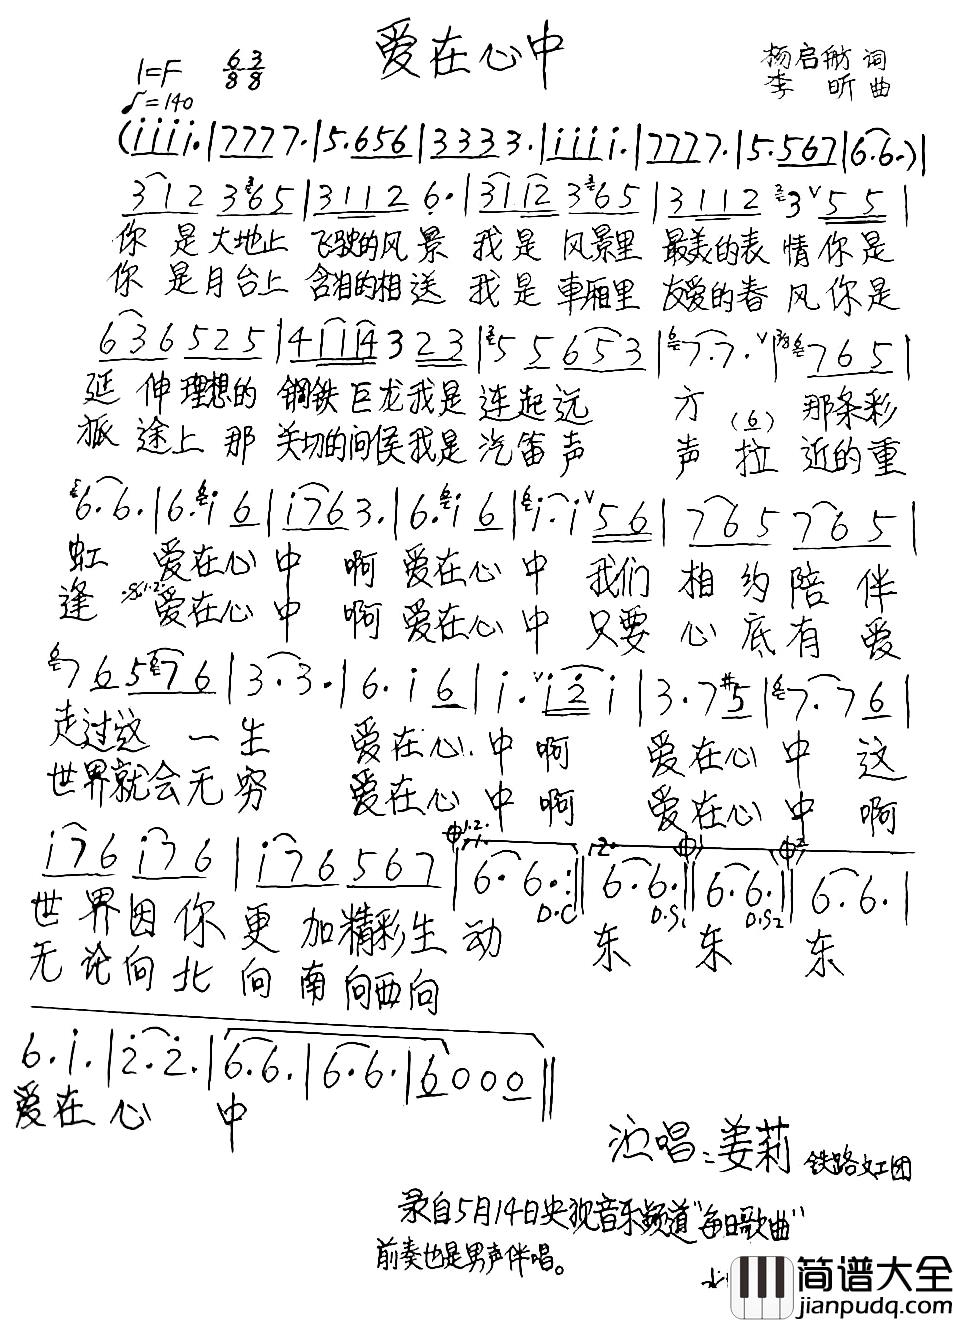 爱在心中
1=F 6/8 3/8
♪=140
杨启舫 词
李 昕 曲
(i i i i. | 7 7 7 7. | 5. 6 5 6 | 3 3 3 3. | i i i i. | 7 7 7 7. | 5. 5 6 7 | 6. 6.) |
3 1 2 3 6 5 | 3 1 1 2 6. | 3 1 1 2 3 6 5 | 3 1 1 2 3 ∨ 5 5 |
你是大地上飞驶的风景我是风景里最美的表情你是
你是月台上含泪的相送我是車厢里友爱的春风你是
6 3 6 5 2 5 | 4 1 1 1 4 3 2 3 | 5 5 6 5 3 | 7. 7. ∨ | 7 6 5 |
延伸理想的钢铁巨龙我是连起远方那条彩
旅途上那关切的问侯我是汽笛声声(6)拉近的重
6. 6. | 6. i 6 | i 7 6 3. | 6. i 6 | i. i ∨ 5 6 | 7 6 5 7 6 5 |
虹爱在心中啊爱在心中我们相约陪伴
逢爱在心中啊爱在心中只要心底有爱
7 6 5 7 6 | 3. 3. | 6. i 6 | i. ∨ i 2 i | 3. 7 #5 | 7. 7 6 |
走过这一生爱在心中啊爱在心中这
世界就会无穷爱在心中啊爱在心中啊
i 7 6 i 7 6 | i 7 6 5 6 7 | 6. 6. :|| 6. 6. || 6. 6. || 6. 6. |
D.C D.S1 D.S2
世界因你更加精彩生动东东东
无论向北向南向西向
6. i. | 2. 2. | 6. 6. | 6. 6. | 6 0 0 0 ||
爱在心中
演唱:姜莉 铁路文工团
录自5月14日央视音乐频道“每日歌曲”
前奏也是男声伴唱。
简谱大全
jianpudq.com